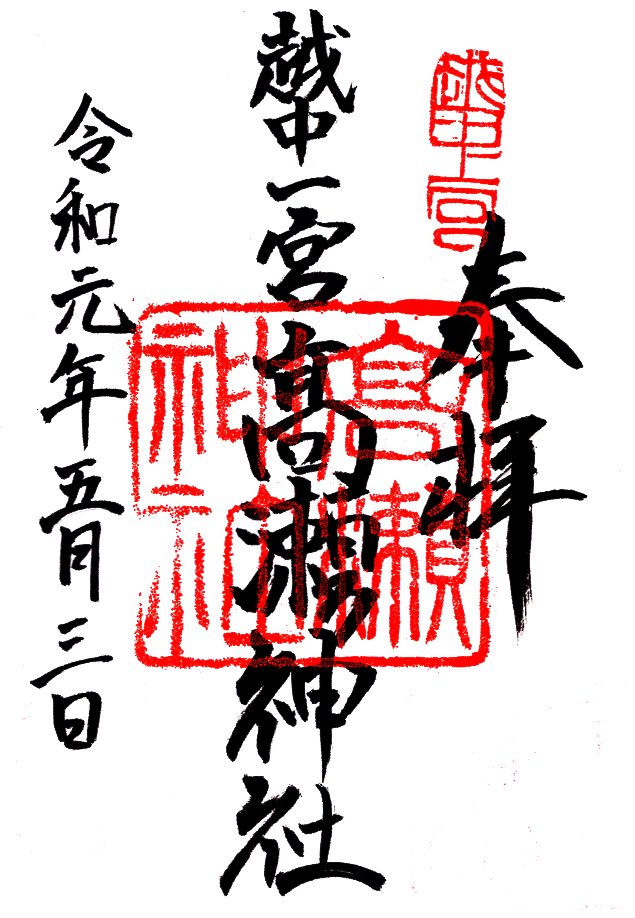 越中一宮
奉拝
越中一宮髙瀬神社
高瀬神社
令和元年五月三日